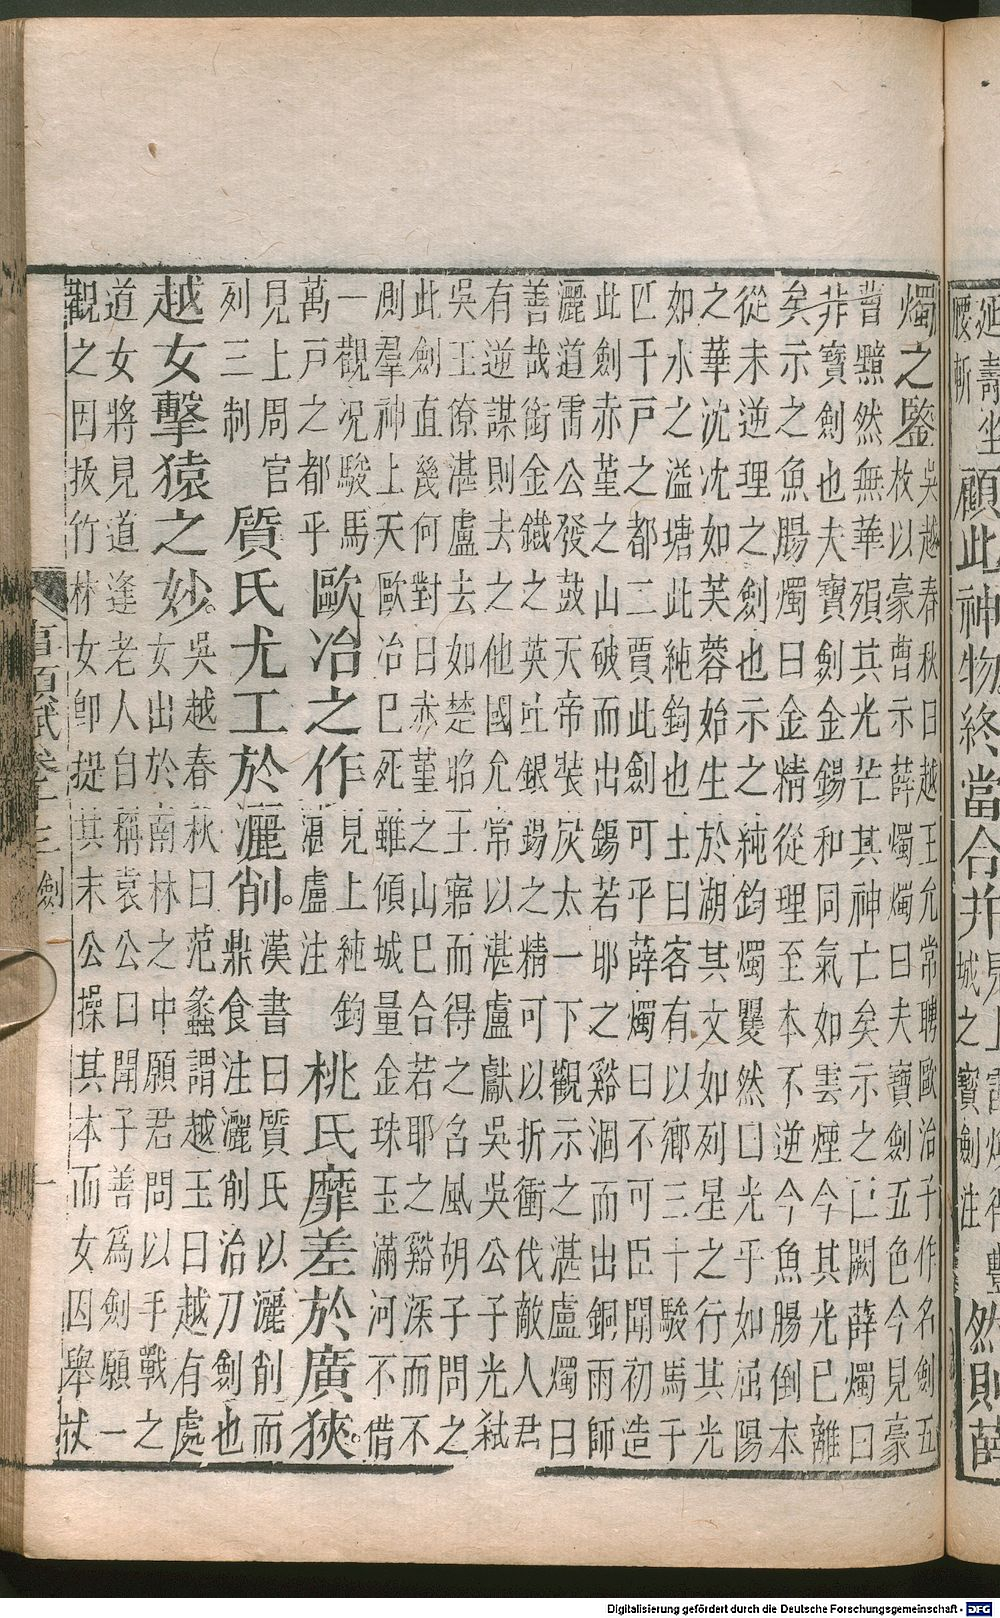 延壽坐
腰斬
顧此神物終當合并
見上雷煥得豐
城之寶劍注
然則薛
燭之鑒
吳越春秋曰越王允常聘歐冶子作名劍五
枚以豪曹示薛燭燭曰夫寶劍五色今見豪
曹黯然無華殞其光芒其神亡矣示之巨闕薛燭曰
非寶劍也夫寶劍金錫和同氣如雲煙今其光已離
矣示之魚腸燭曰金精從理至本不逆今魚腸倒本
從末逆理之劍也示之純鈞燭矍然曰光乎如屈陽
之華沈沈如芙蓉始生於湖其文如列星之行其光
如水之溢塘此純鈞也王曰客有以鄉三十駿馬千
匹千戶之都二賈此劍可乎薛燭曰不可臣聞初造
此劍赤堇之山破而出錫若耶之谿涸而出銅雨師
灑道雷公發鼓天帝裝炭太一下觀示之湛盧燭曰
善哉銜金鐵之英吐銀錫之精可以折衝伐敵人君
有逆謀則去之他國允常以湛盧獻吳吳公子光弒
吳王僚湛盧去如楚昭王寤而得之召風胡子問之
此劍直幾何對曰赤堇之山已合若耶之谿深而不
測羣神上天歐冶已死雖傾城量金珠玉滿河不借
一觀況駿馬
萬戶之都乎
歐冶之作
見上純鈞
湛盧注
桃氏靡差於廣狹。
見上周官
列三制
質氏尤工於灑削。
漢書曰質氏以灑削而
鼎食注灑削治刀劍也
越女擊猿之妙。
吳越春秋曰范蠡謂越王曰越有處
女出於南林之中願君問以手戰之
道女將見道逢老人自稱袁公曰聞子善爲劍願一
觀之因拔竹林女卽捉其末公操其本而女因舉杖
賦卷十三 劍
Digitalisierung gefördert durch die Deutsche Forschungsgemeinschaft - DFG